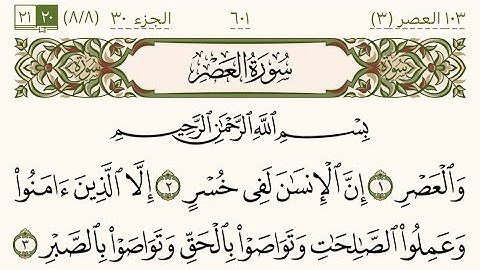 ١٠٣ العصر (٣) ٦٠١ الجزء ٣٠ (٨/٨) ٢٠ ٢١
سُورَةُ الْعَصْرِ
بِسْمِ اللَّهِ الرَّحْمَٰنِ الرَّحِيمِ
وَالْعَصْرِ ١ إِنَّ الْإِنسَانَ لَفِي خُسْرٍ ٢ إِلَّا الَّذِينَ ءَامَنُوا
وَعَمِلُوا الصَّالِحَاتِ وَتَوَاصَوْا بِالْحَقِّ وَتَوَاصَوْا بِالصَّبْرِ ٣